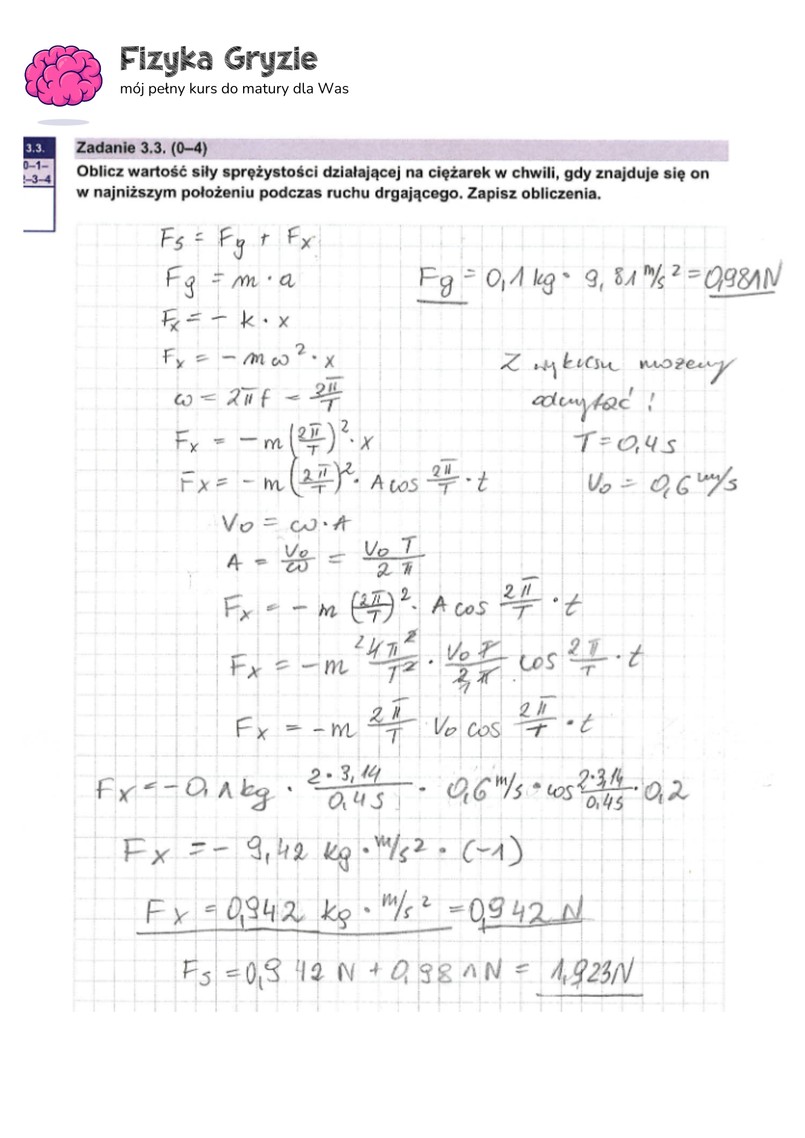 Fizyka Gryzie
mój pełny kurs do matury dla Was
3.3.
0–1–
2–3–4
Zadanie 3.3. (0–4)
Oblicz wartość siły sprężystości działającej na ciężarek w chwili, gdy znajduje się on
w najniższym położeniu podczas ruchu drgającego. Zapisz obliczenia.
Fs = Fg + Fx
Fg = m · a
Fg = 0,1 kg · 9,81 m/s² = 0,981N
Fx = - k · x
Fx = - mω² · x
Z wykresu możemy
ω = 2πf = 2π/T
odczytać!
Fx = - m (2π/T)² · x
T = 0,4 s
Fx = - m (2π/T)² · A cos 2π/T · t
V₀ = 0,6 m/s
V₀ = ω · A
A = V₀/ω = V₀ T/2π
Fx = - m (2π/T)² · A cos 2π/T · t
Fx = - m 4π²/T² · V₀ T/2π cos 2π/T · t
Fx = - m 2π/T V₀ cos 2π/T · t
Fx = - 0,1 kg · 2·3,14/0,4 s · 0,6 m/s · cos 2·3,14/0,4s · 0,2
Fx = - 9,42 kg · m/s² · (-1)
Fx = 0,942 kg · m/s² = 0,942 N
Fs = 0,942 N + 0,981N = 1,923N